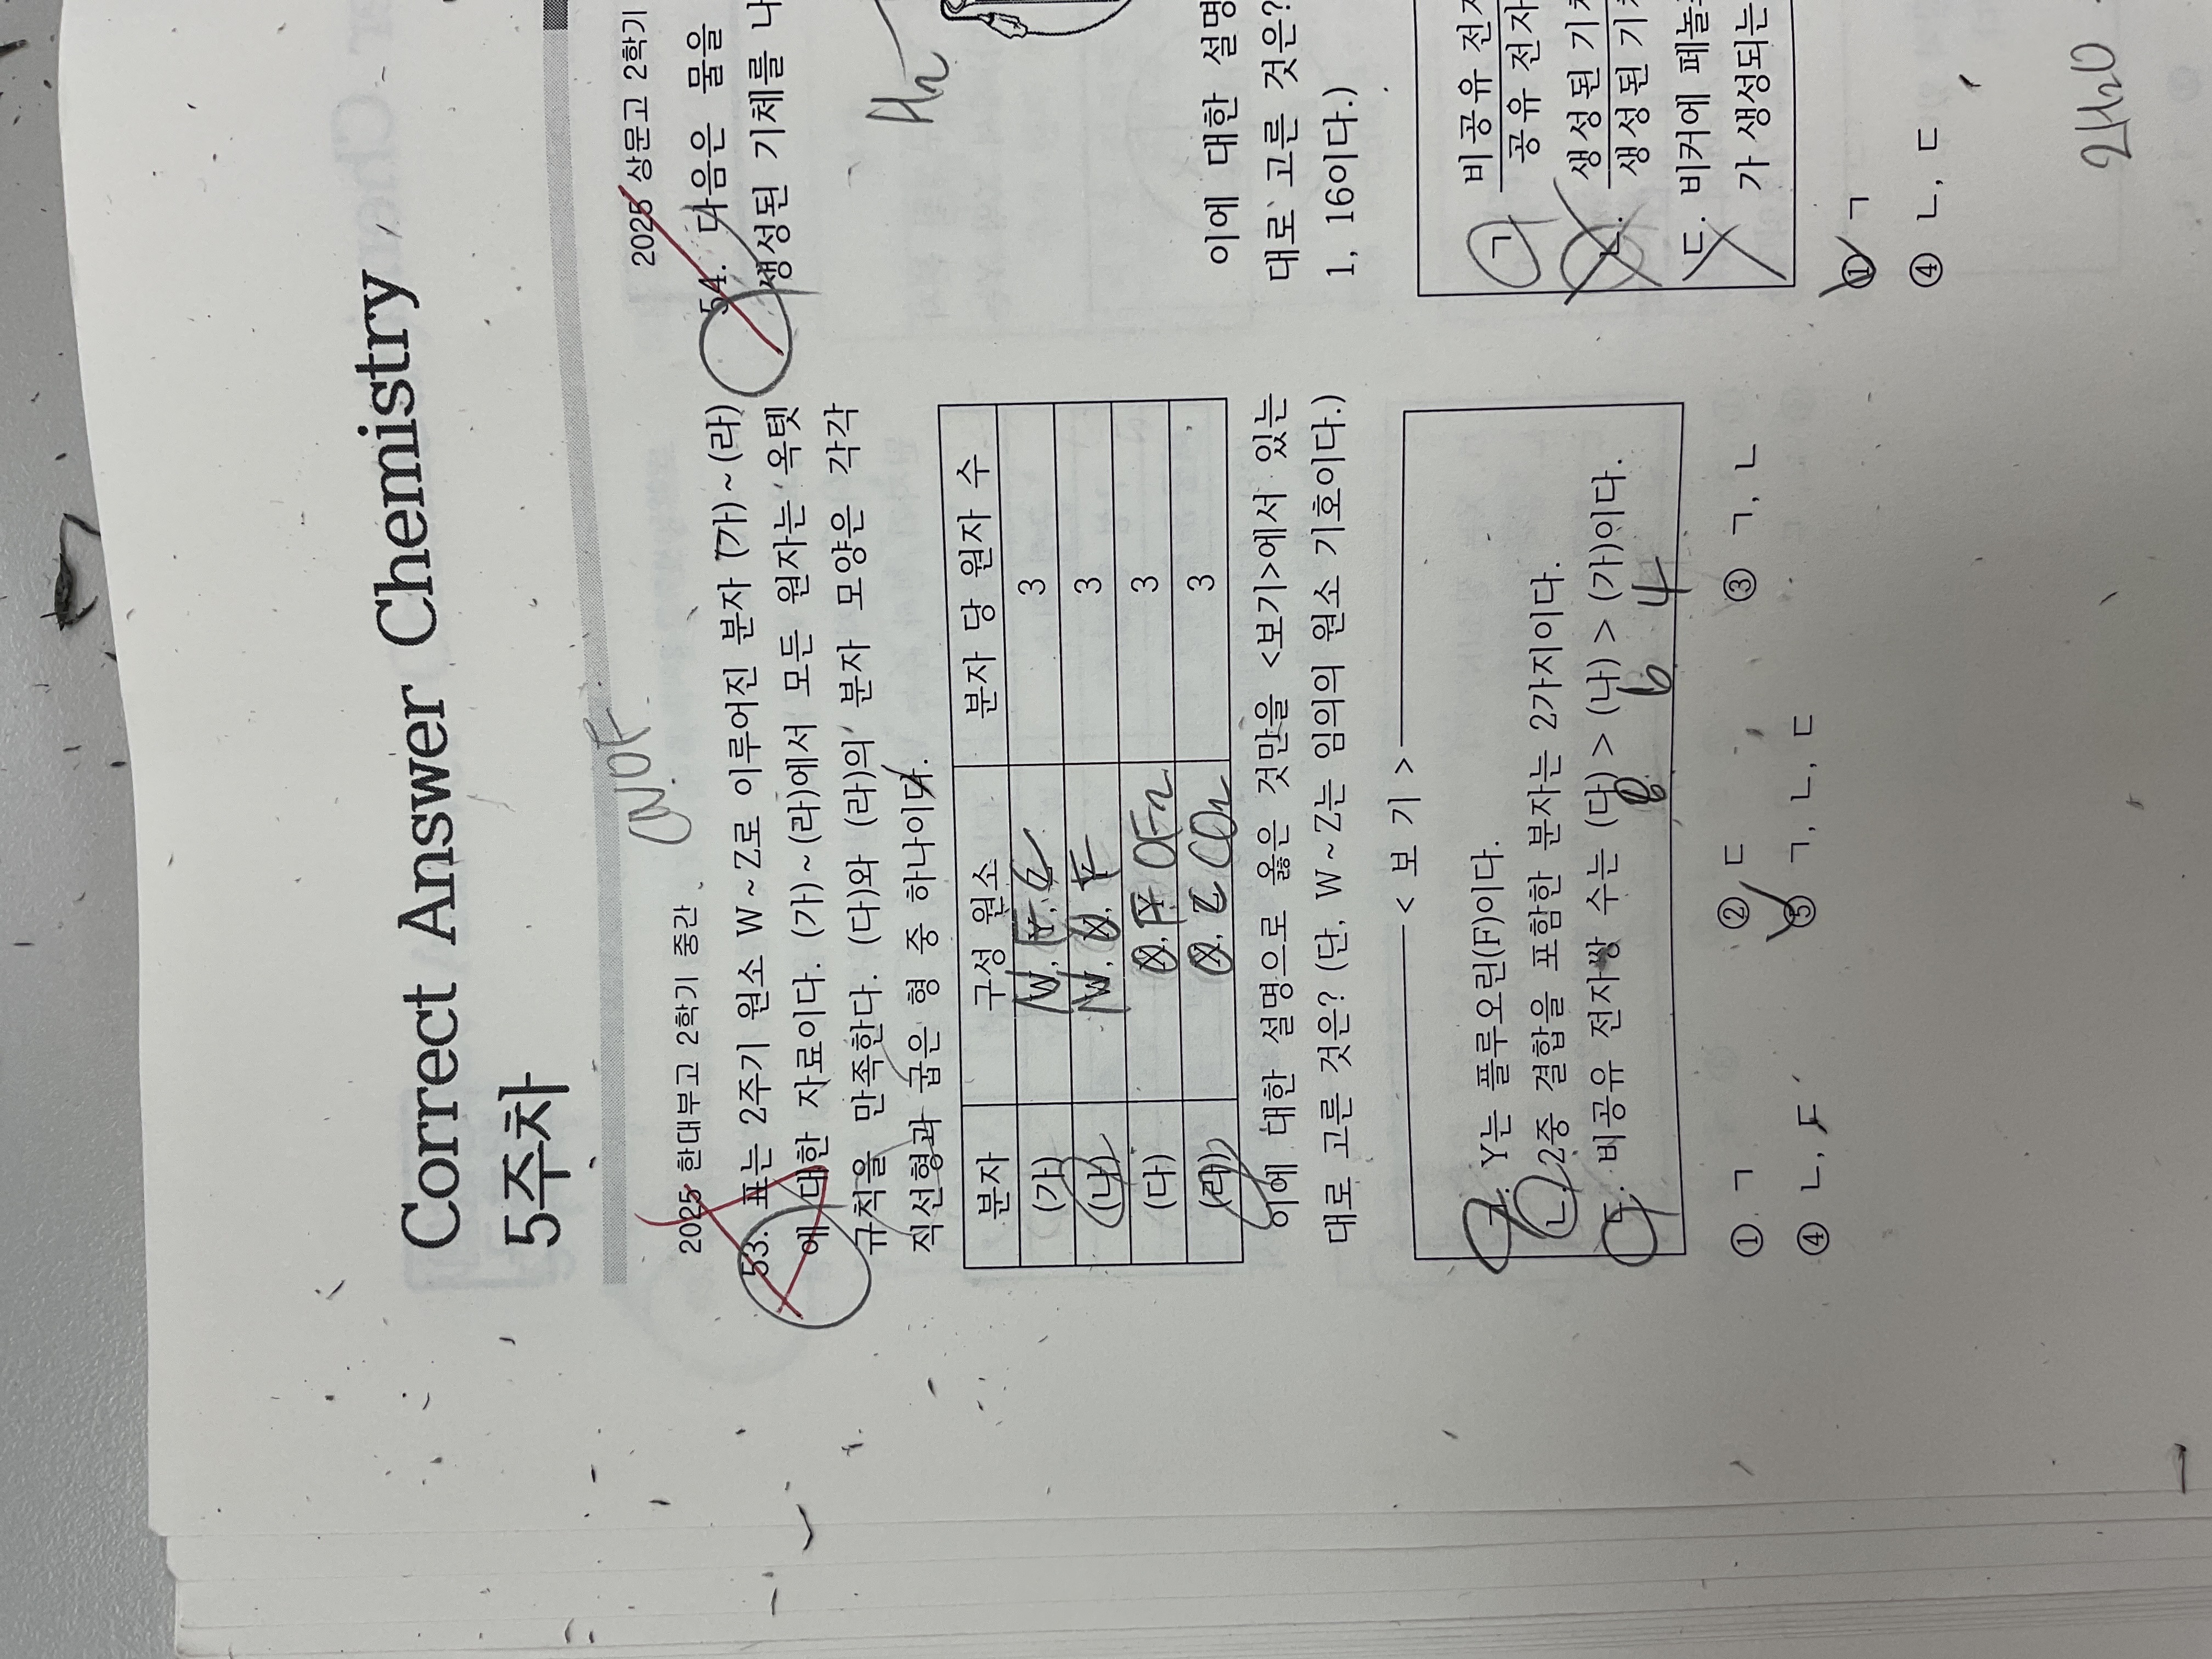 Correct Answer Chemistry
5주차
CNOF
2025 한대부고 2학기 중간
53. 표는 2주기 원소 W ~ Z로 이루어진 분자 (가) ~ (라)
에 대한 자료이다. (가) ~ (라)에서 모든 원자는 옥텟
규칙을 만족한다. (다)와 (라)의 분자 모양은 각각
직선형과 굽은 형 중 하나이다.
분자 구성 원소 분자 당 원자 수
(가) W, Y, Z 3
(나) W, X, Y 3
(다) X, Y OF2 3
(라) X, Z CO2 3
이에 대한 설명으로 옳은 것만을 <보기>에서 있는
대로 고른 것은? (단, W ~ Z는 임의의 원소 기호이다.)
< 보 기 >
ㄱ. Y는 플루오린(F)이다.
ㄴ. 2중 결합을 포함한 분자는 2가지이다.
ㄷ. 비공유 전자쌍 수는 (다) > (나) > (가)이다.
8 6 4
① ㄱ ② ㄷ ③ ㄱ, ㄴ
④ ㄴ, ㄷ ⑤ ㄱ, ㄴ, ㄷ
2025 상문고 2학기
54. 다음은 물을
생성된 기체를 나
H2
이에 대한 설명
대로 고른 것은?
1, 16이다.)
ㄱ. 비공유 전자
공유 전자
ㄴ. 생성된 기체
생성된 기체
ㄷ. 비커에 페놀
가 생성되는
① ㄱ
④ ㄴ, ㄷ
2H2O